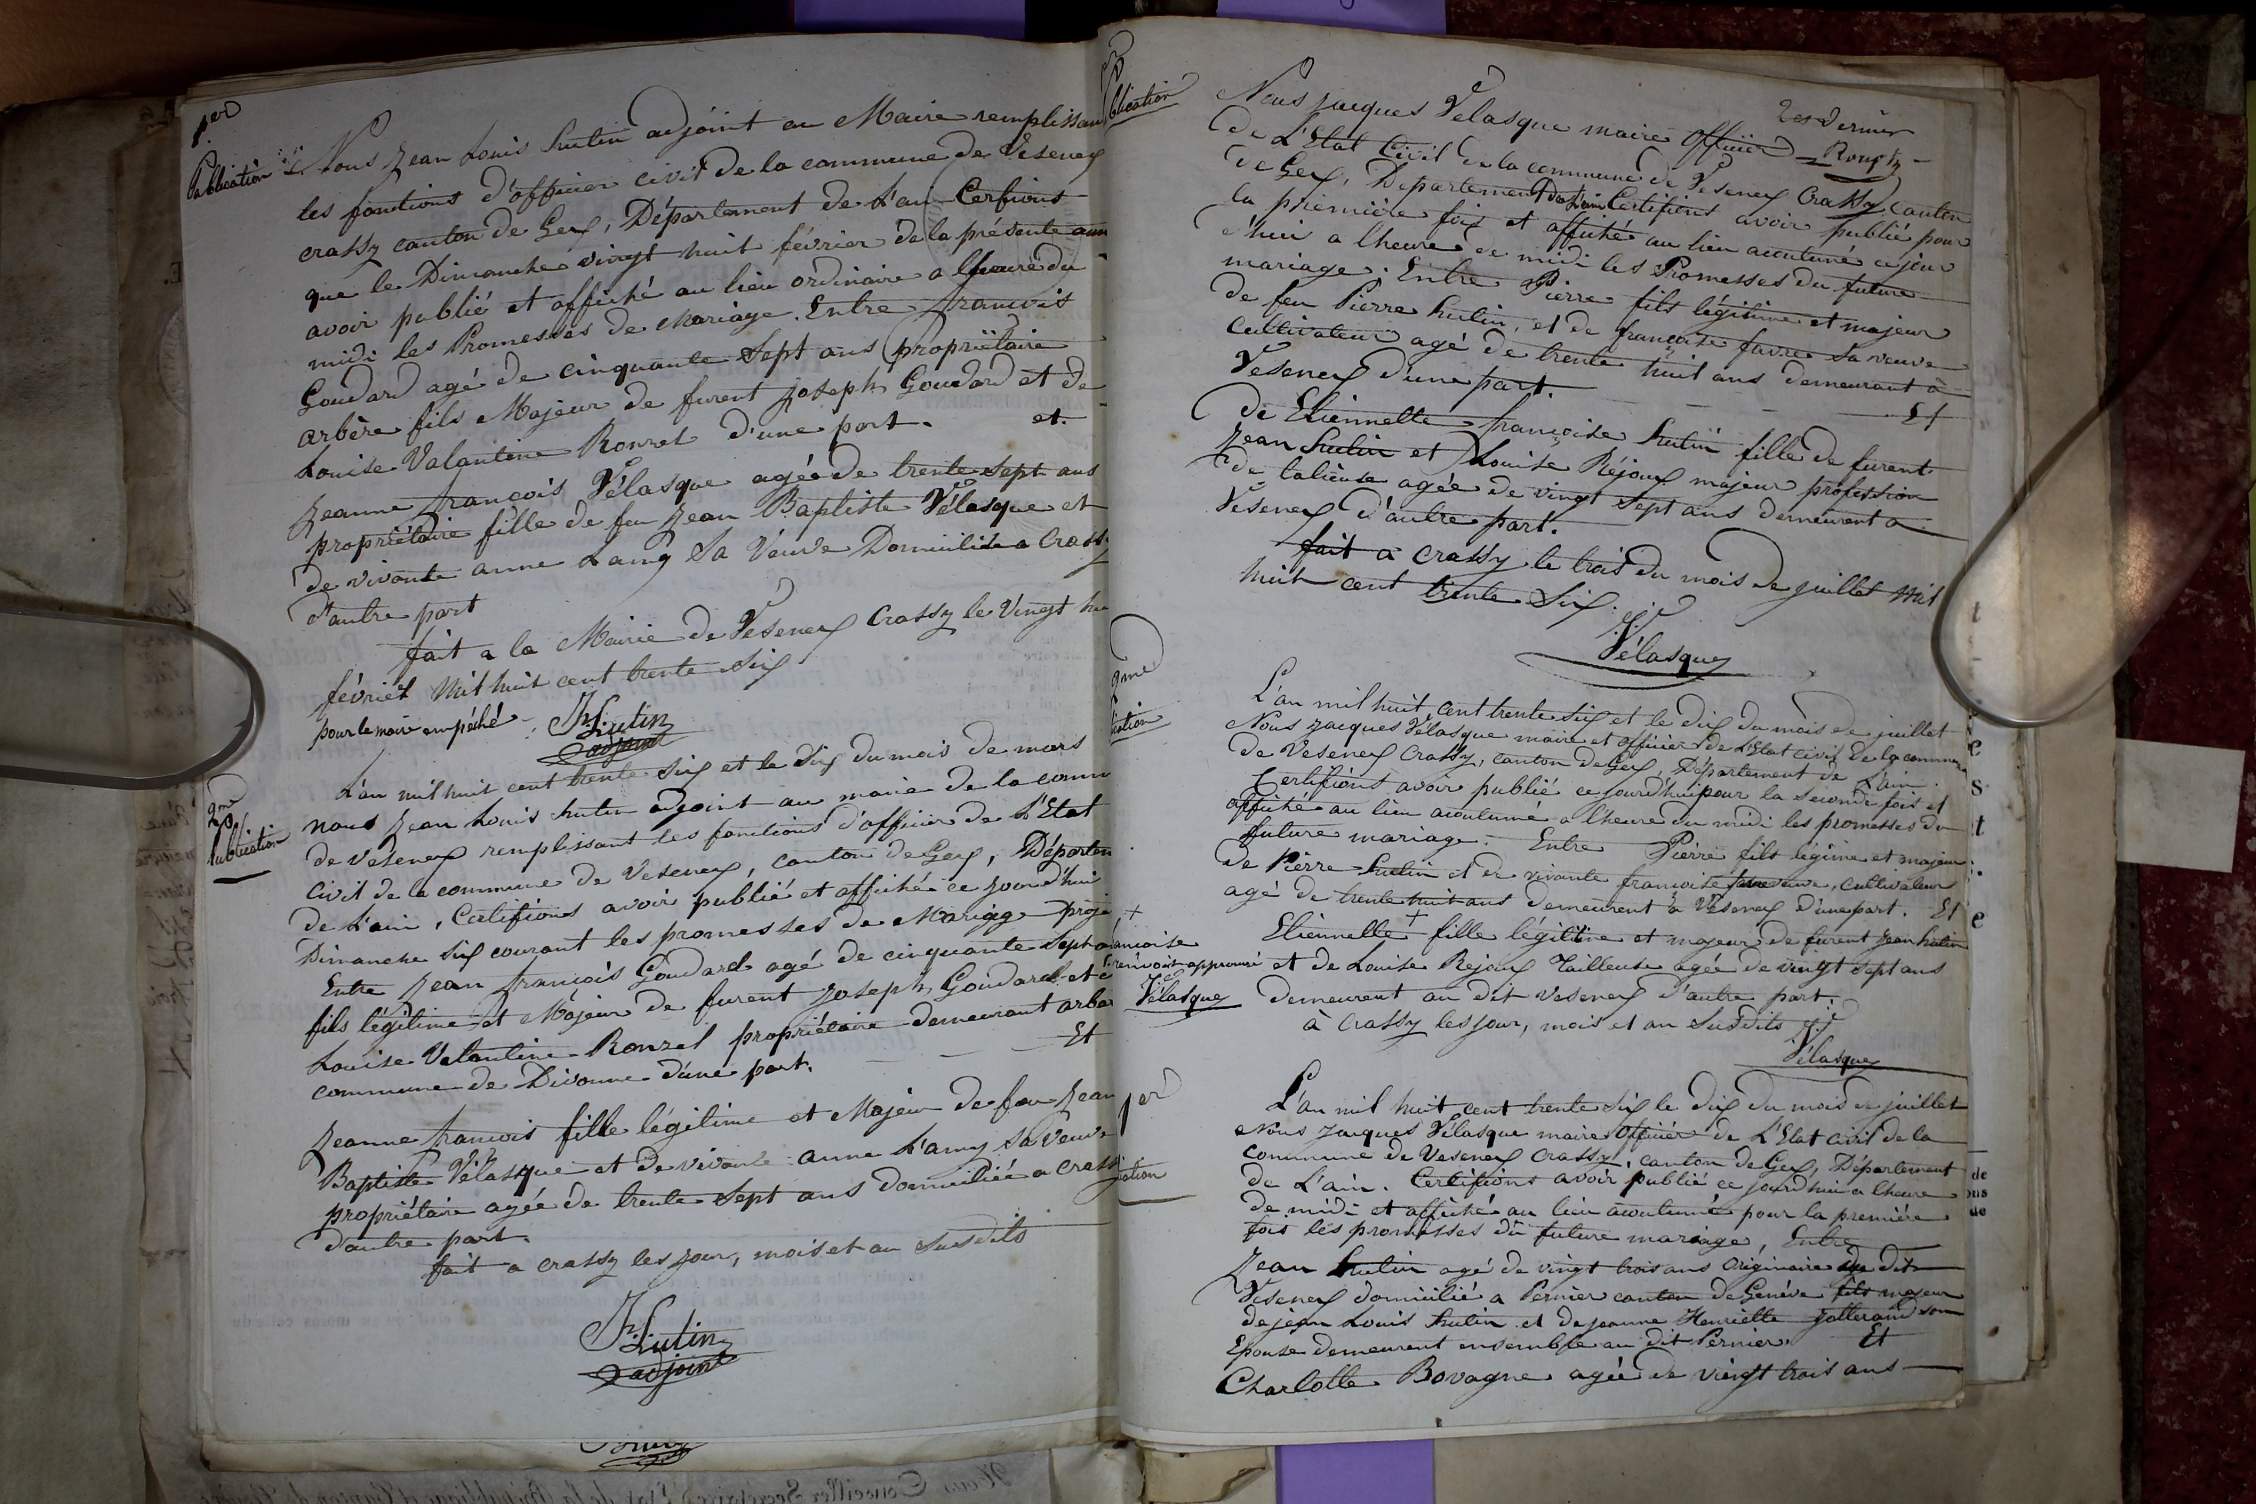 1er
Publication
Nous Jean Louis hutin adjoint au Maire remplissan
les fonctions d'officier civil de la commune de Vesenex
crassy canton de Gex, Département de L'ain Cerfions
que le Dimanche vingt huit février de la présente ann
avoir publié et affiché au lieu ordinaire a lheure du
midi les Promesses de Mariage. Entre francois
Goudard agé de cinquante Sept ans propriétaire
arbère fils Majeur de furent Joseph Goudard et de
Louise Valantine Ronzet d'une part. et.
Jeanne francois Vélasque agée de trente sept ans
propriétaire fille de feu Jean Baptiste Vélasque et
de vivante anne Lamy Sa Veuve Domicilié a Crassy
d'autre part
fait a la Mairie de Vesenex Crassy le Vingt hu
février Mil huit cent trente Six
pour le maire empéché J. L. hutin
adjoint
2me
Publication
L'an mil huit cent trente Six et le Six du mois de mars
nous Jean Louis hutin adjoint au maire de la comm
de vesenex remplissant les fonctions d'officier de L'Etat
Civil de la commune de Vesenex, canton de Gex, Départem
de L'ain, Certifions avoir publié et affiché ce jourd'hui
Dimanche Six courant les promesses de Mariage proje
Entre Jean francois Goudard agé de cinquante Sept a
fils légitime et Majeur de furent Joseph Goudard et
Louise Valantine Ronzet propriétaire demeurant arber
commune de Divonne d'une part. Et
Jeanne francois fille légitime et Majeur de feu Jean
Baptiste Vélasque et de vivante anne L'amy Sa Veuve
propriétaire agée de trente Sept ans domiciliée a crassy
d'autre part.
fait a crassy les jour, mois et an Susdits
J. L. hutin
adjoint
blication
2es Dernier
Rouph
Nous jacques Vélasque maire Officier
de L'Etat Civil de la commune de Vesenex Crassy canton
de Gex, Département de L'ain Certifions avoir publié pour
la première fois et affiché au lieu acoutumé cejour
d'hui a lheure de midi les Promesses du future
mariage. Entre Pierre fils légitime et majeur
de feu Pierre hutin, et de françoise favre Sa veuve
Cultivateur agé de trente huit ans demeurant à
Vesenex d'une part. Et
de Etiennette françoise hutin fille de furent
Jean hutin et Louise Réjoux majeur profession
de talieuse agée de vingt Sept ans demeurent a
Vesenex d'autre part.
fait a crassy le trois du mois de juillet mil
huit cent trente Six.
Vélasque
2me
cation
L'an mil huit cent trente Six et le dix du mois de juillet
Nous jacques Vélasque maire et officier de L'Etat civil de la commune
de Vesenex Crassy, canton de Gex, Département de L'ain.
Certifions avoir publié ce jourd'hui pour la seconde fois et
affiché au lieu acoutumé a lheure du midi les promesses du
future mariage. Entre Pierre fils légitime et majeur
de Pierre hutin et de vivante francoise favre veuve, Cultivateur
agé de trente huit ans demeurent à Vesenex d'une part. Et
Etiennette + fille légitime et majeur de furent Jean hutin
et de Louise Rejoux Tailleuse agée de vingt Sept ans
demeurent au dit vesenex d'autre part.
à Crassy les jour, mois et an Susdits
Vélasque
+
ancoise
renvoit approuvé
Vélasque
1er
cation
L'an mil huit cent trente Six le dix du mois de juillet
Nous jacques Vélasque maire Officier de L'Etat civil de la
commune de Vesenex Crassy, canton de Gex, Département
de L'ain. Certifions avoir publié ce jourd'hui a lheure
de midi et affiché au lieu acoutumé pour la première
fois les promesses du future mariage, Entre
Jean hutin agé de vingt trois ans Originaire du dit
Vesenex domicilié a Pernier canton de Genève fils majeur
de jean Louis hutin et de jeanne Henriette Jatterand son
Epouse demeurent ensemble au dit Pernier. Et
Charlotte Bovagne agée de vingt trois ans